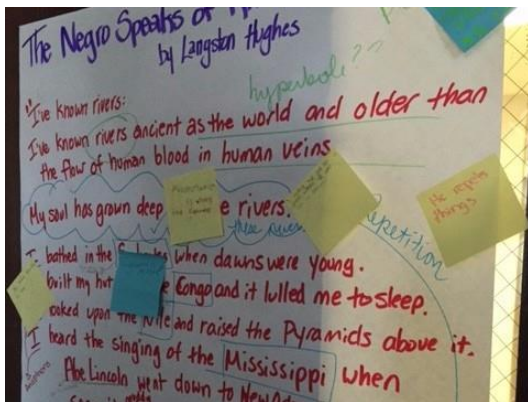 The Negro Speaks of
by Langston Hughes
hyperbole?
"I've known rivers:
I've known rivers ancient as the world and older than
the flow of human blood in human veins
My soul has grown deep e rivers.
these rivers
He repeats
things
repetition
I bathed in the when dawns were young.
built my hut e Congo and it lulled me to sleep.
looked upon the Nile and raised the Pyramids above it.
I heard the singing of the Mississippi when
Abe Lincoln went down to New